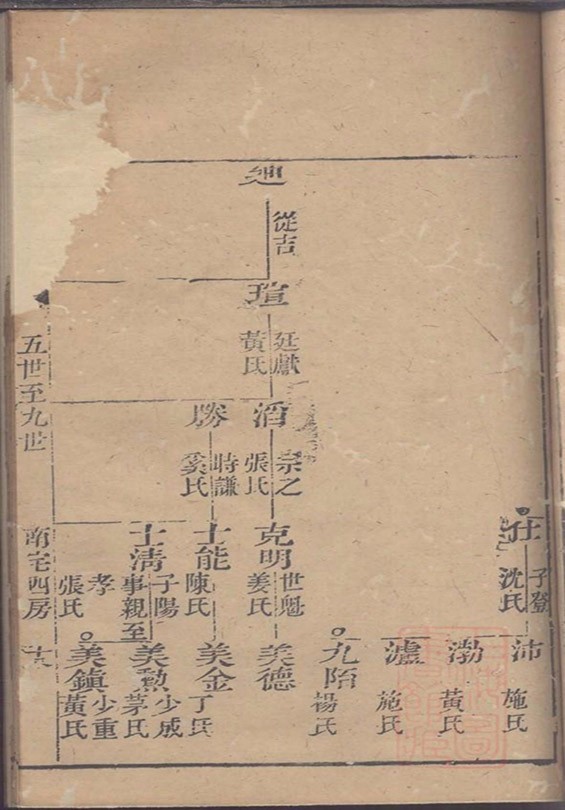 迪
從吉
瑄
廷獻
黃氏
滔
宗之
張氏
勝
時謙
奚氏
仕
子登
沈氏
克明
世魁
姜氏
士能
陳氏
士清
子陽
事親至
孝
張氏
沛
施氏
渤
黃氏
瀘
施氏
九階
楊氏
美德
美金
丁氏
美勲
少成
茅氏
美鎮
少重
黃氏
五世至九世
南宅四房